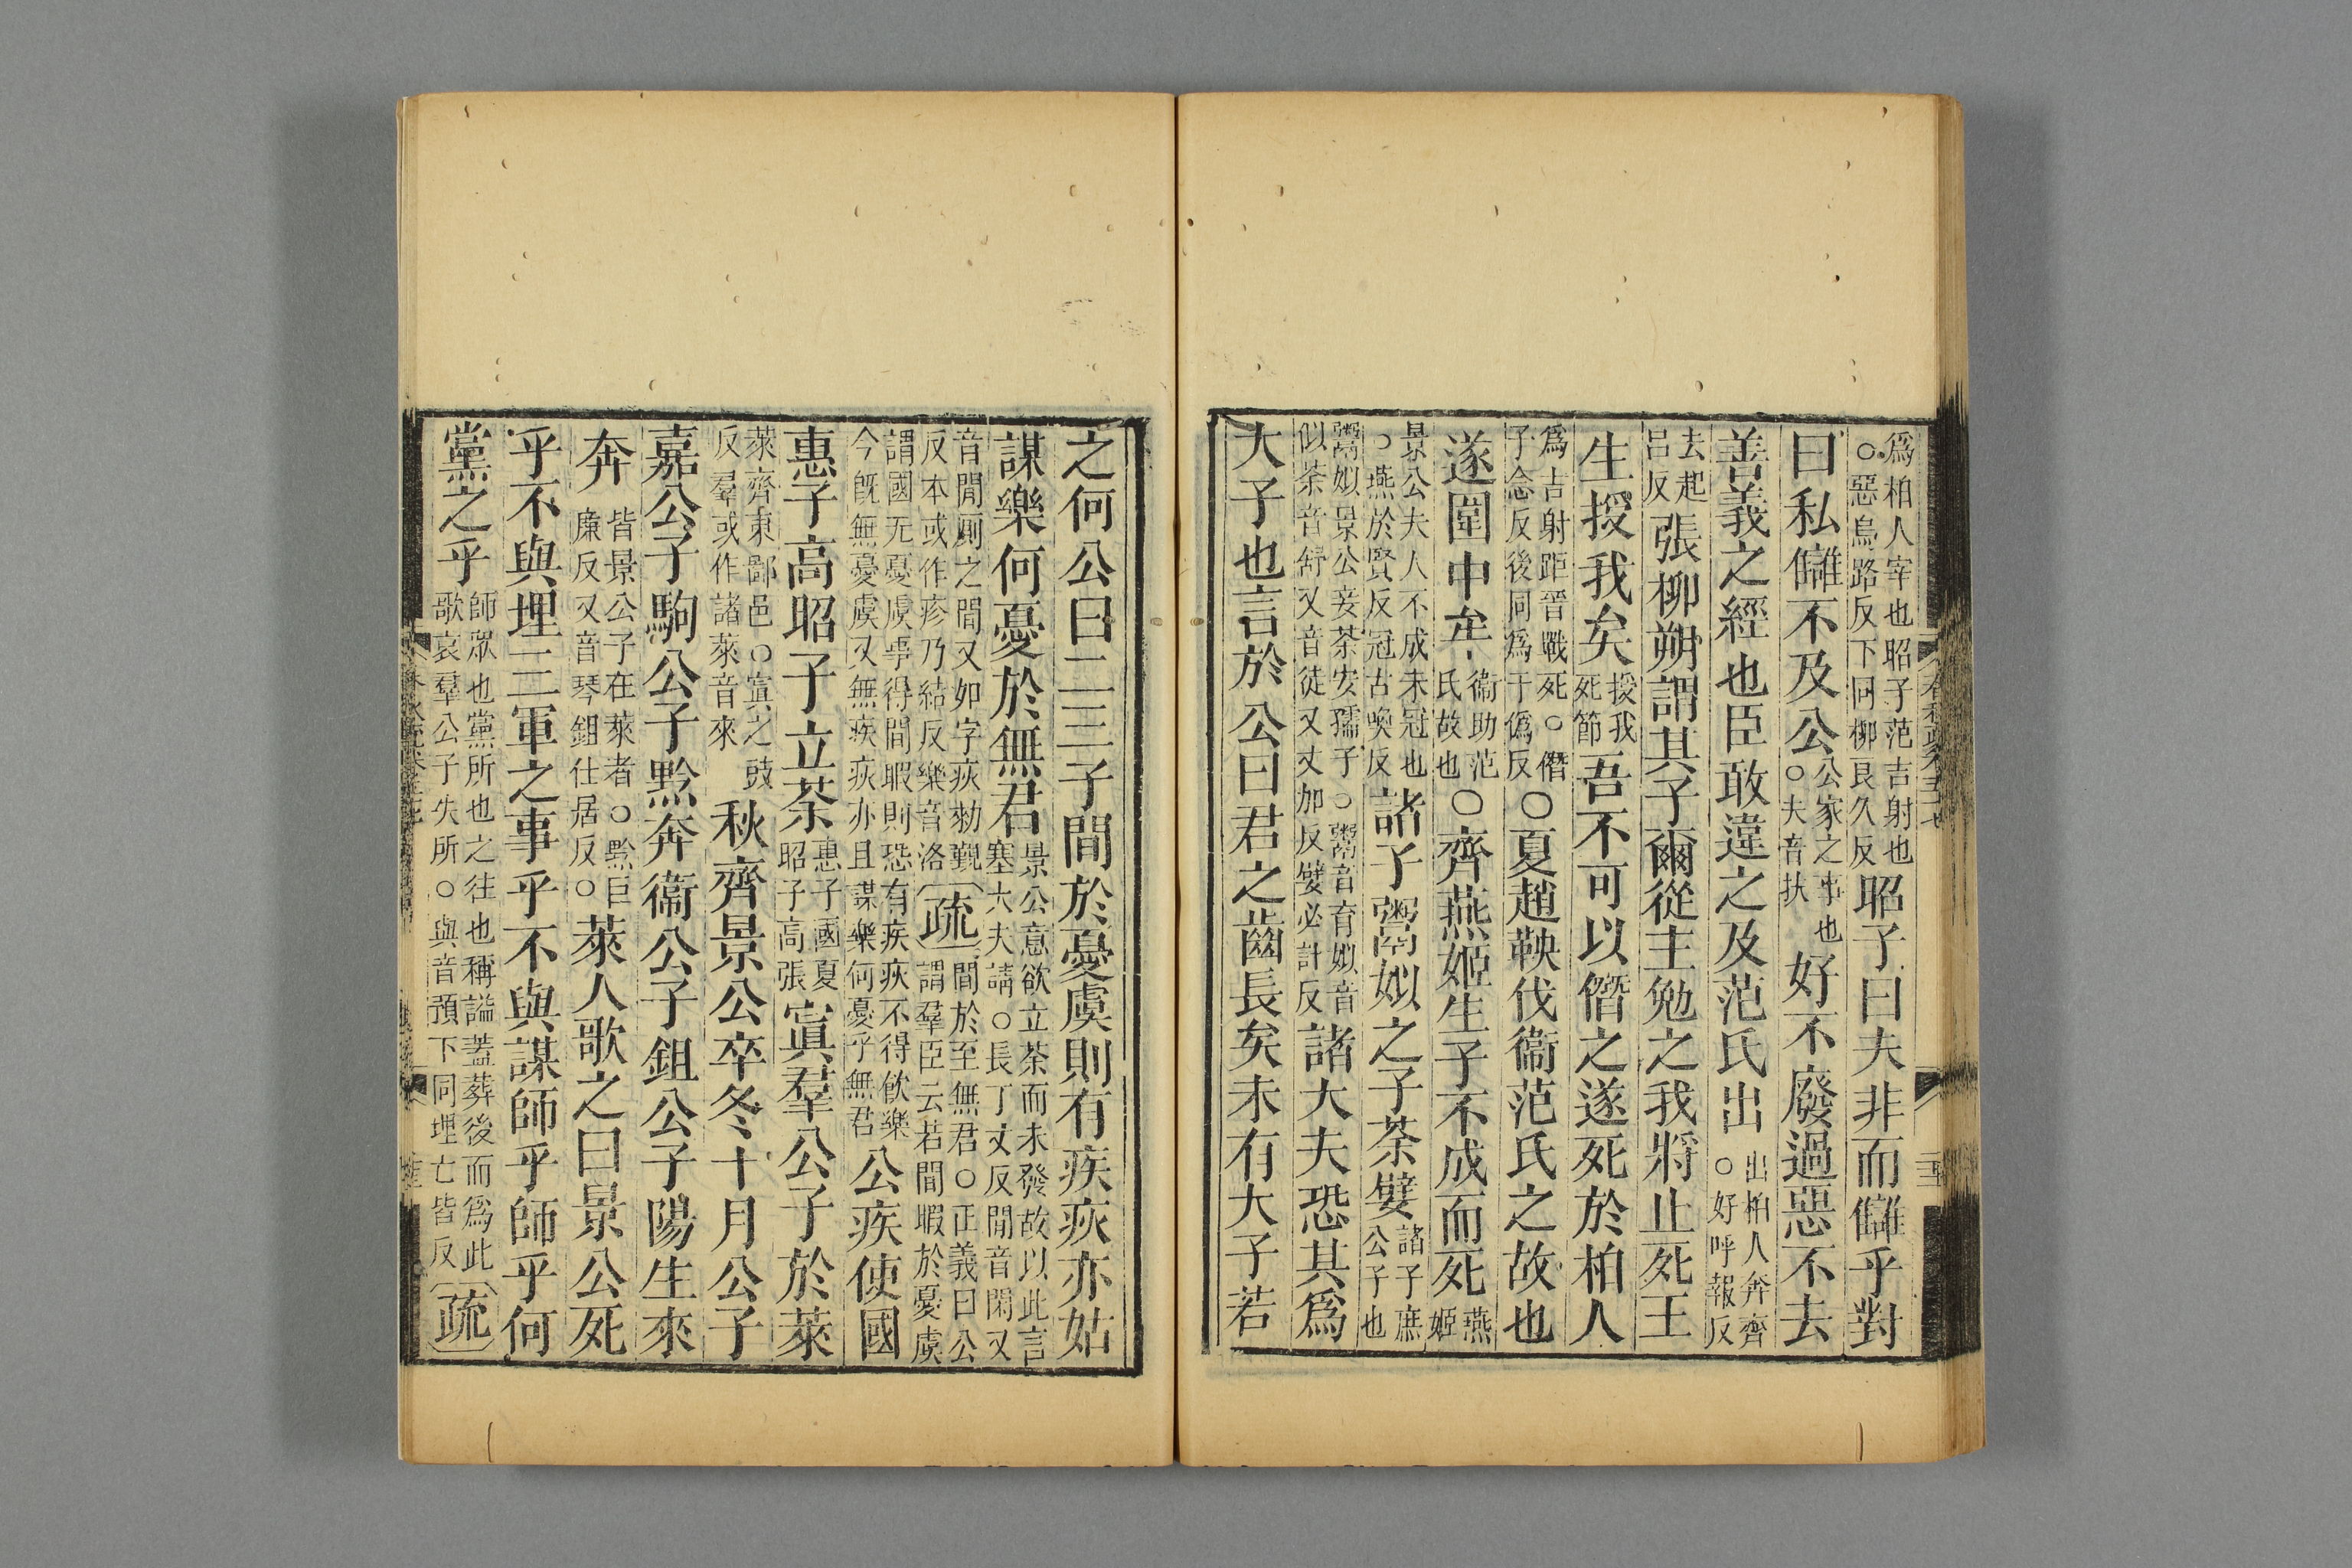 爲柏人宰也昭子范吉射也
○惡烏路反下同柳良久反昭子曰夫非而讎乎對
曰私讎不及公公家之事也
○夫音扶好不廢過惡不去
善義之經也臣敢違之及范氏出出柏人奔齊
○好呼報反
去起
呂反張柳朔謂其子爾從主勉之我將止死王
生授我矣授我
死節吾不可以僭之遂死於柏人
爲吉射距晉戰死○僭
子念反後同爲于僞反○夏趙鞅伐衞范氏之故也
遂圍中牟衞助范
氏故也○齊燕姬生子不成而死燕
姬
景公夫人不成未冠也
○燕於賢反冠古喚反諸子鬻姒之子荼嬖諸子庶
公子也
鬻姒景公妾荼安孺子○鬻音育姒音
似荼音舒又音徒又丈加反嬖必計反諸大夫恐其爲
大子也言於公曰君之齒長矣未有大子若
之何公曰二三子間於憂虞則有疾疢亦姑
謀樂何憂於無君景公意欲立荼而未發故以此言
塞大夫請○長丁丈反閒音閑又
音閒厠之閒又如字疢勑覲
反本或作疹乃結反樂音洛疏間於至無君○正義曰公
謂羣臣云若閒暇於憂虞
謂國无憂虞事得閒暇則恐有疾疢不得飲樂
今旣無憂虞又無疾疢亦且謀樂何憂乎無君公疾使國
惠子高昭子立荼惠子國夏
昭子高張寘羣公子於萊
萊齊東鄙邑○寘之豉
反羣或作諸萊音來秋齊景公卒冬十月公子
嘉公子駒公子黔奔衞公子鉏公子陽生來
奔皆景公子在萊者○黔巨
廉反又音琴鉏仕居反○萊人歌之曰景公死
乎不與埋三軍之事乎不與謀師乎師乎何
黨之乎師衆也黨所也之往也稱謚蓋葬後而爲此
歌哀羣公子失所○與音預下同埋亡皆反疏